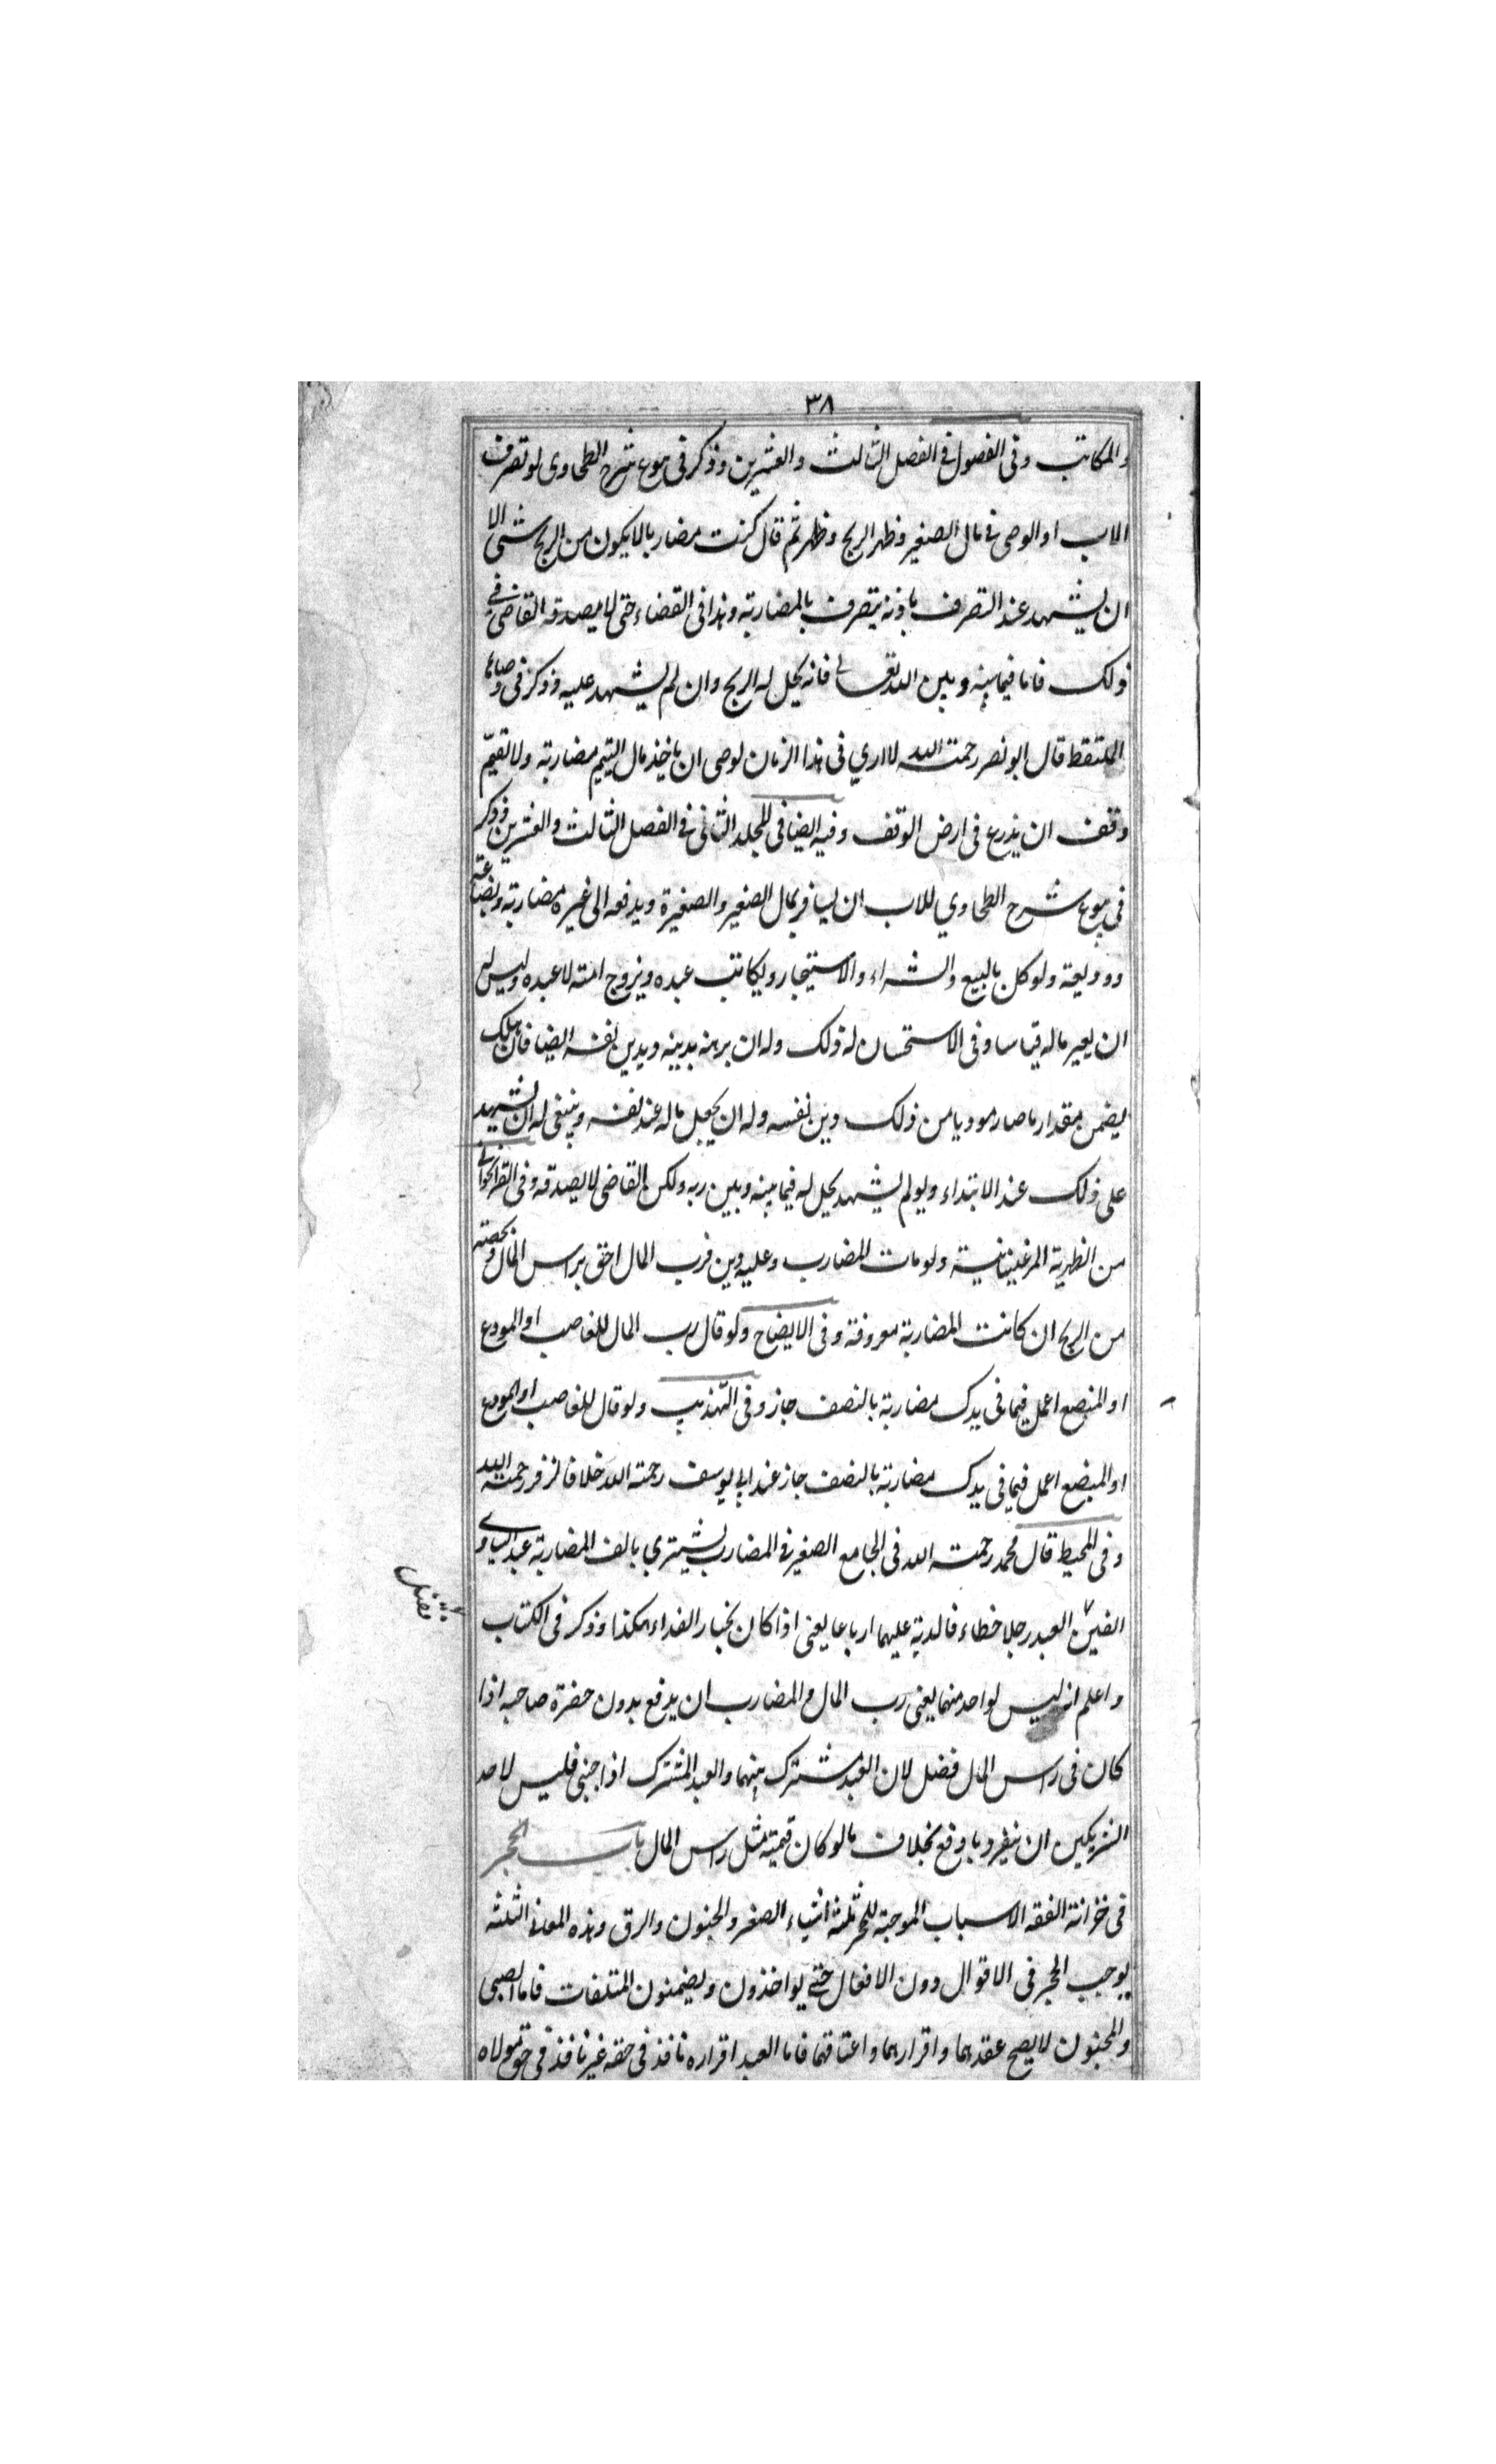 ٣٨
والمكاتب وفى الفصول فى الفصل الثالث والعشرين وذكر فى بيوع شرح الطحاوى لو تصرف
الاب او الوصى فى مال الصغير وظهر الربح وظهر ثم قال كنت مضاربا لا يكون من الربح شئ الا
ان يشهد عند التصرف بانه يتصرف بالمضاربة وهذا فى القضاء حتى لا يصدقه القاضى فى
ذلك فاما فيما بينه وبين الله تعالى فانه يحل له الربح وان لم يشهد عليه وذكر فى وصايا
الملتقط قال ابو نصر رحمت الله لا ارى فى هذا الزمان لوصى ان ياخذ مال اليتيم مضاربة ولا لقيم
وقف ان يذرع فى ارض الوقف وفيه ايضا فى المجلد الثانى فى الفصل الثالث والعشرين وذكر
فى بيوع شرح الطحاوي للاب ان يسافر بمال الصغير والصغيرة ويدفعه الى غيره مضاربة وبضاعة
وو وديعة ولو كل بالبيع والشراء والاستيجار ويكاتب عبده ويزوج امته لا عبده وليس له
ان يعير ماله قياسا وفى الاستحسان له ذلك وله ان يرهنه بدينه وبدين نفسه ايضا فان هلك
يضمن مقدار ما صار موديا من ذلك دين نفسه وله ان يجعل ماله عند نفسه وينبغى له ان يشهد
على ذلك عند الابتداء ولو لم يشهد يحل له فيما بينه وبين ربه ولكن القاضى لا يصدقه وفى القراخوانى
من الظهرية المرغينانية ولو مات المضارب وعليه دين فرب المال احق براس المال وبحصته
من الربح ان كانت المضاربة معروفة وفى الايضاح ولو قال رب المال للغاصب او المودع
او المبضع اعمل فيما فى يدك مضاربة بالنصف جاز وفى التهذيب ولو قال للغاصب او المودع
او المبضع اعمل فيما فى يدك مضاربة بالنصف جاز عند ابى يوسف رحمة الله خلافا لزفر رحمت الله
وفى المحيط قال محمد رحمت الله فى الجامع الصغير فى المضارب يشترى بالف المضاربة عبدا يساوى
الفين العبد رجلا خطاء فالدية عليهما ارباعا يعنى اذا كان بخيار الفداء هكذا وذكر فى الكتاب
فقتل
واعلم انه ليس لواحد منهما يعنى رب المال والمضارب ان يدفع بدون حضرة صاحبه اذا
كان فى راس المال فضل لان العبد مشترك بينهما والعبد المشترك اذا جنى فليس لاحد
الشريكين ان ينفرد بادفع بخلاف ما لو كان قيمته مثل راس المال باب الحجر
فى خزانة الفقه الاسباب الموجبة للحجر ثلثة اشياء الصغر والجنون والرق وهذه المعانى الثلثه
يوجب الحجر فى الاقوال دون الافعال حتى يواخذون ويضمنون المتلفات فاما الصبى
والمجنون لا يصح عقدهما واقرارهما واعتاقهما فاما العبد اقراره نافذ فى حقه غير نافذ فى حق مولاه